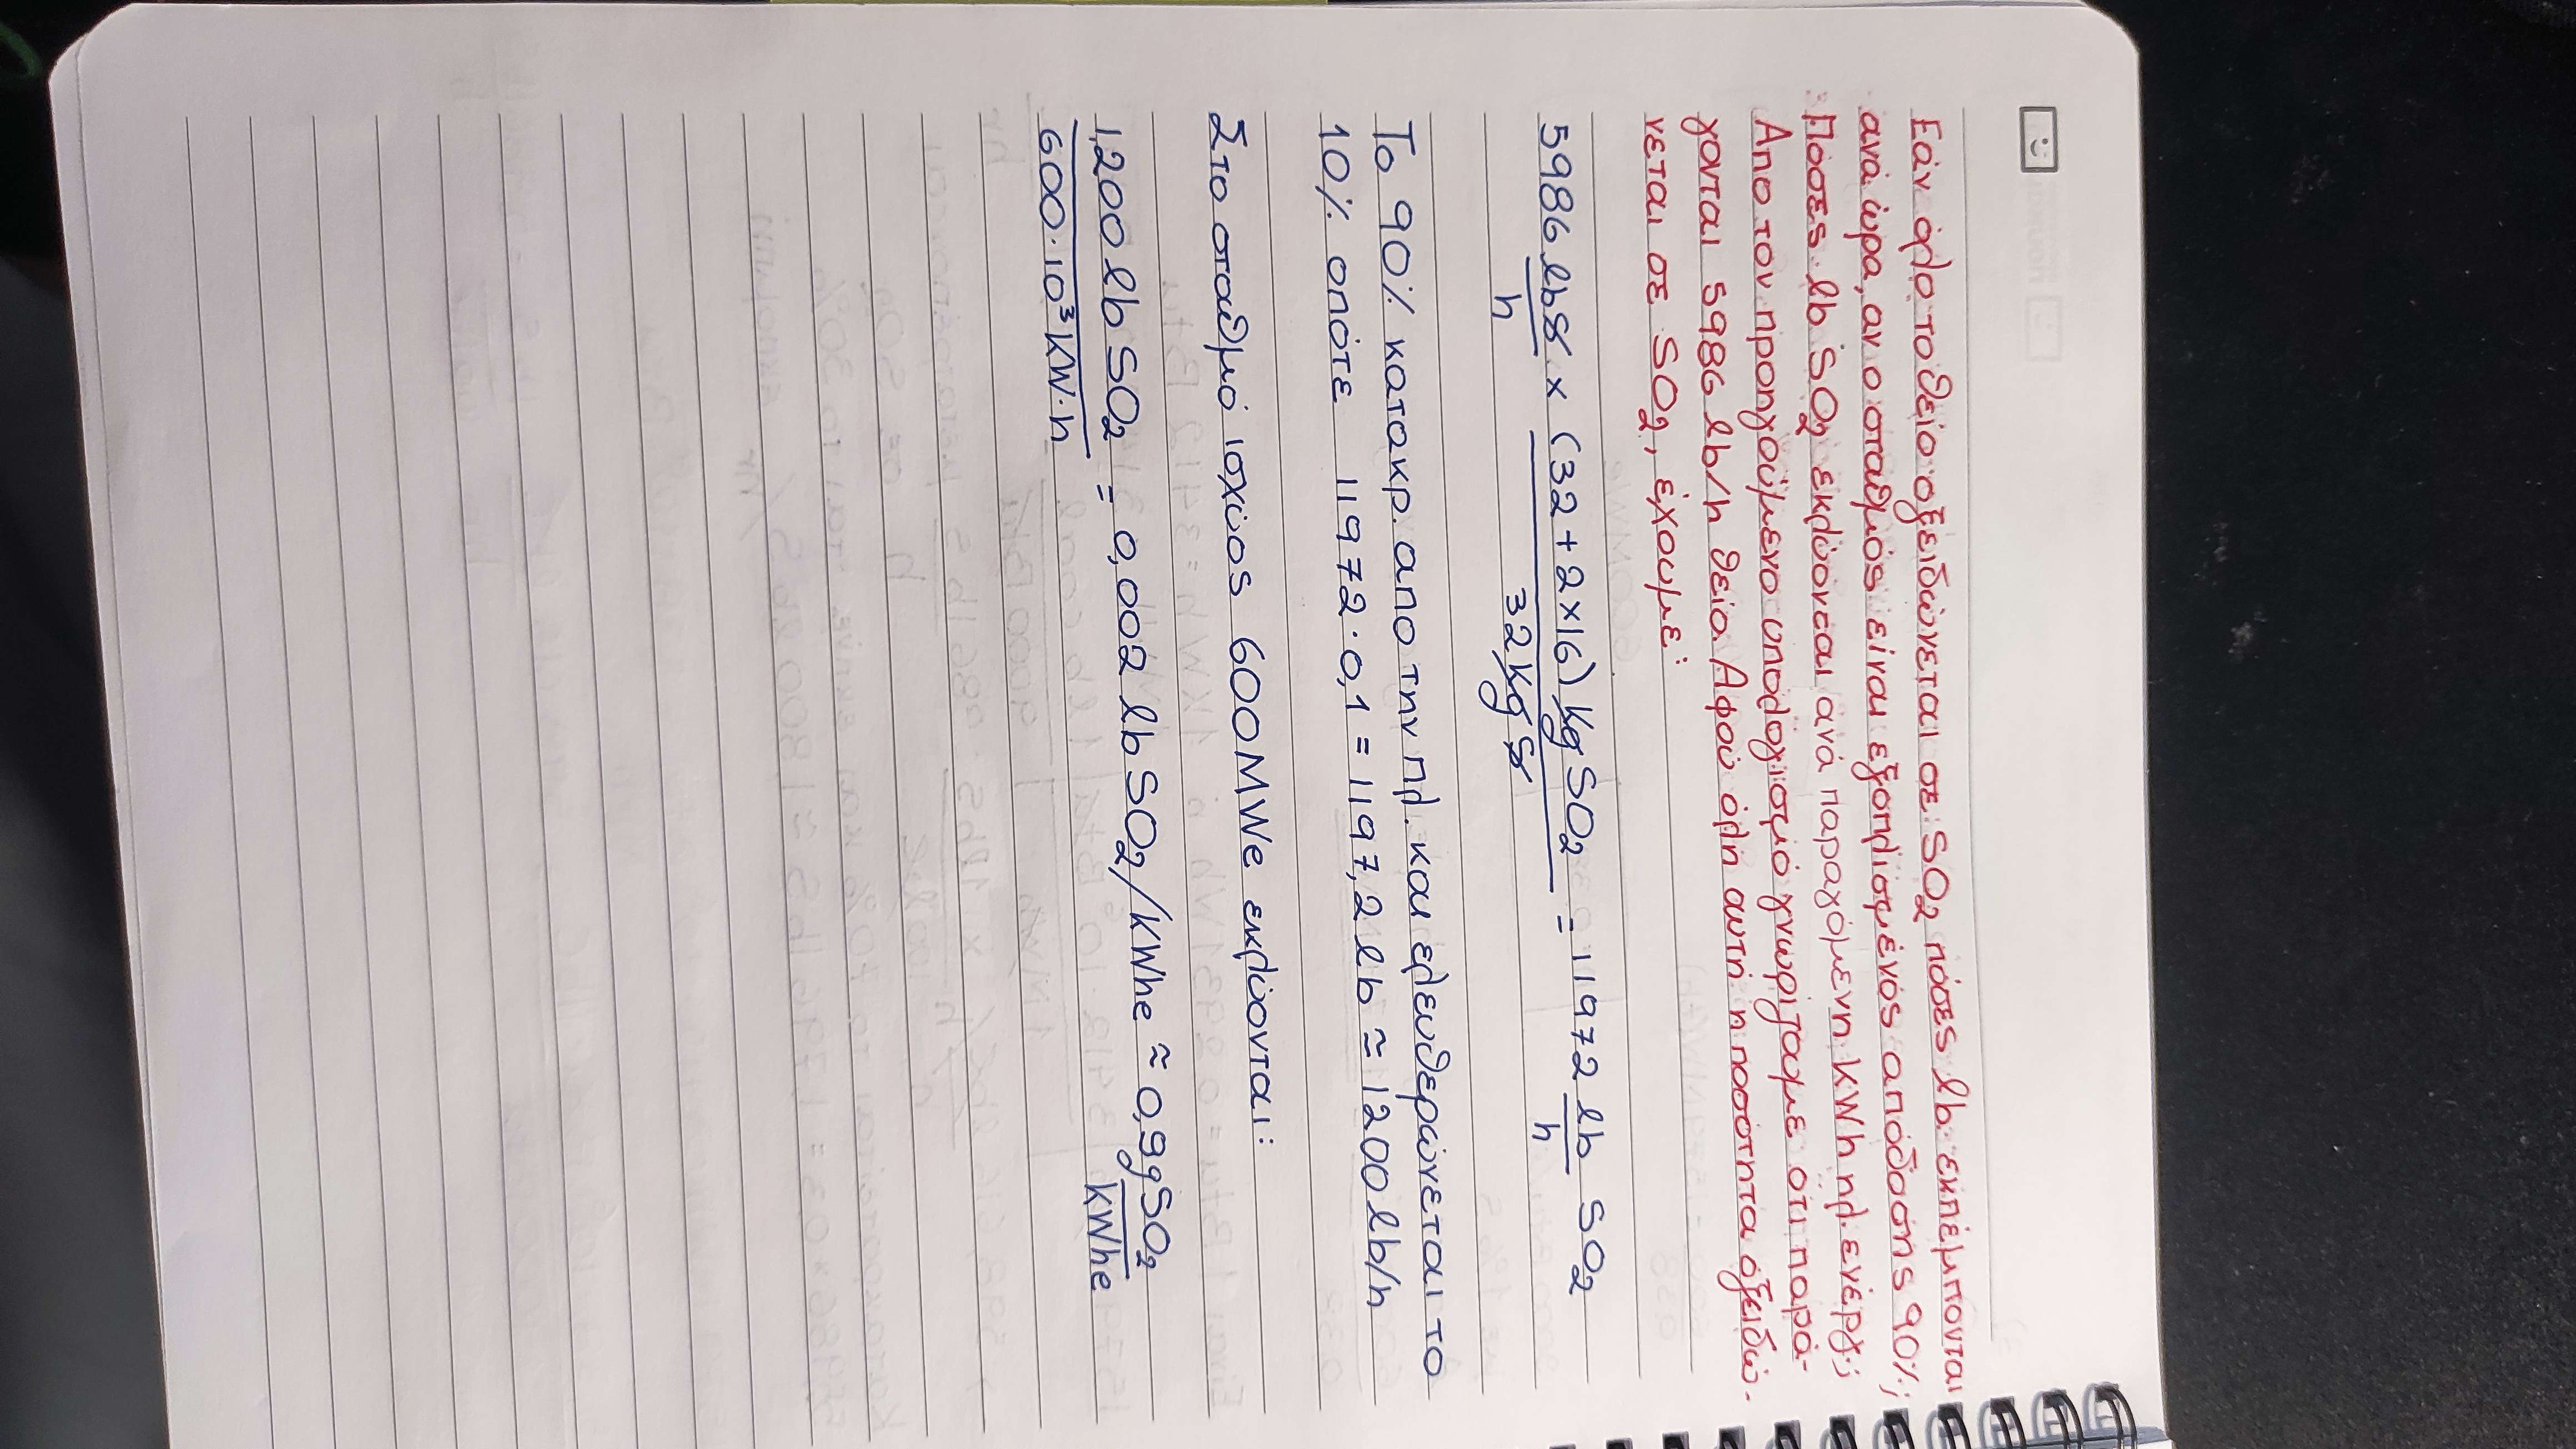 Εάν όλο το θείο οξειδώνεται σε SO2 πόσες lb εκπέμπονται
ανά ώρα, αν ο σταθμός είναι εξοπλισμένος απόδοσης 90%;
Πόσες lb SO2 εκλύονται ανά παραγόμενη KWh ηλ. ενέργ;
Απο τον προηγούμενο υπολογισμό γνωρίζουμε οτι παρά-
γονται 5986 lb/h θείο. Αφού όλη αυτή η ποσότητα οξειδώ-
νεται σε SO2, έχουμε:
5986 lbS/h × (32+2×16) kg SO2 / 32 kg S = 11972 lb/h SO2
Το 90% κατακρ. απο την πλ. και ελευθερώνεται το
10% οπότε 11972·0,1 = 1197,2 lb ≈ 1200 lb/h
Στο σταθμό ισχύος 600MWe εκλύονται:
1,200 lb SO2 / 600·10³ KW·h = 0,002 lb SO2/KWhe ≈ 0,9g SO2 / KWhe